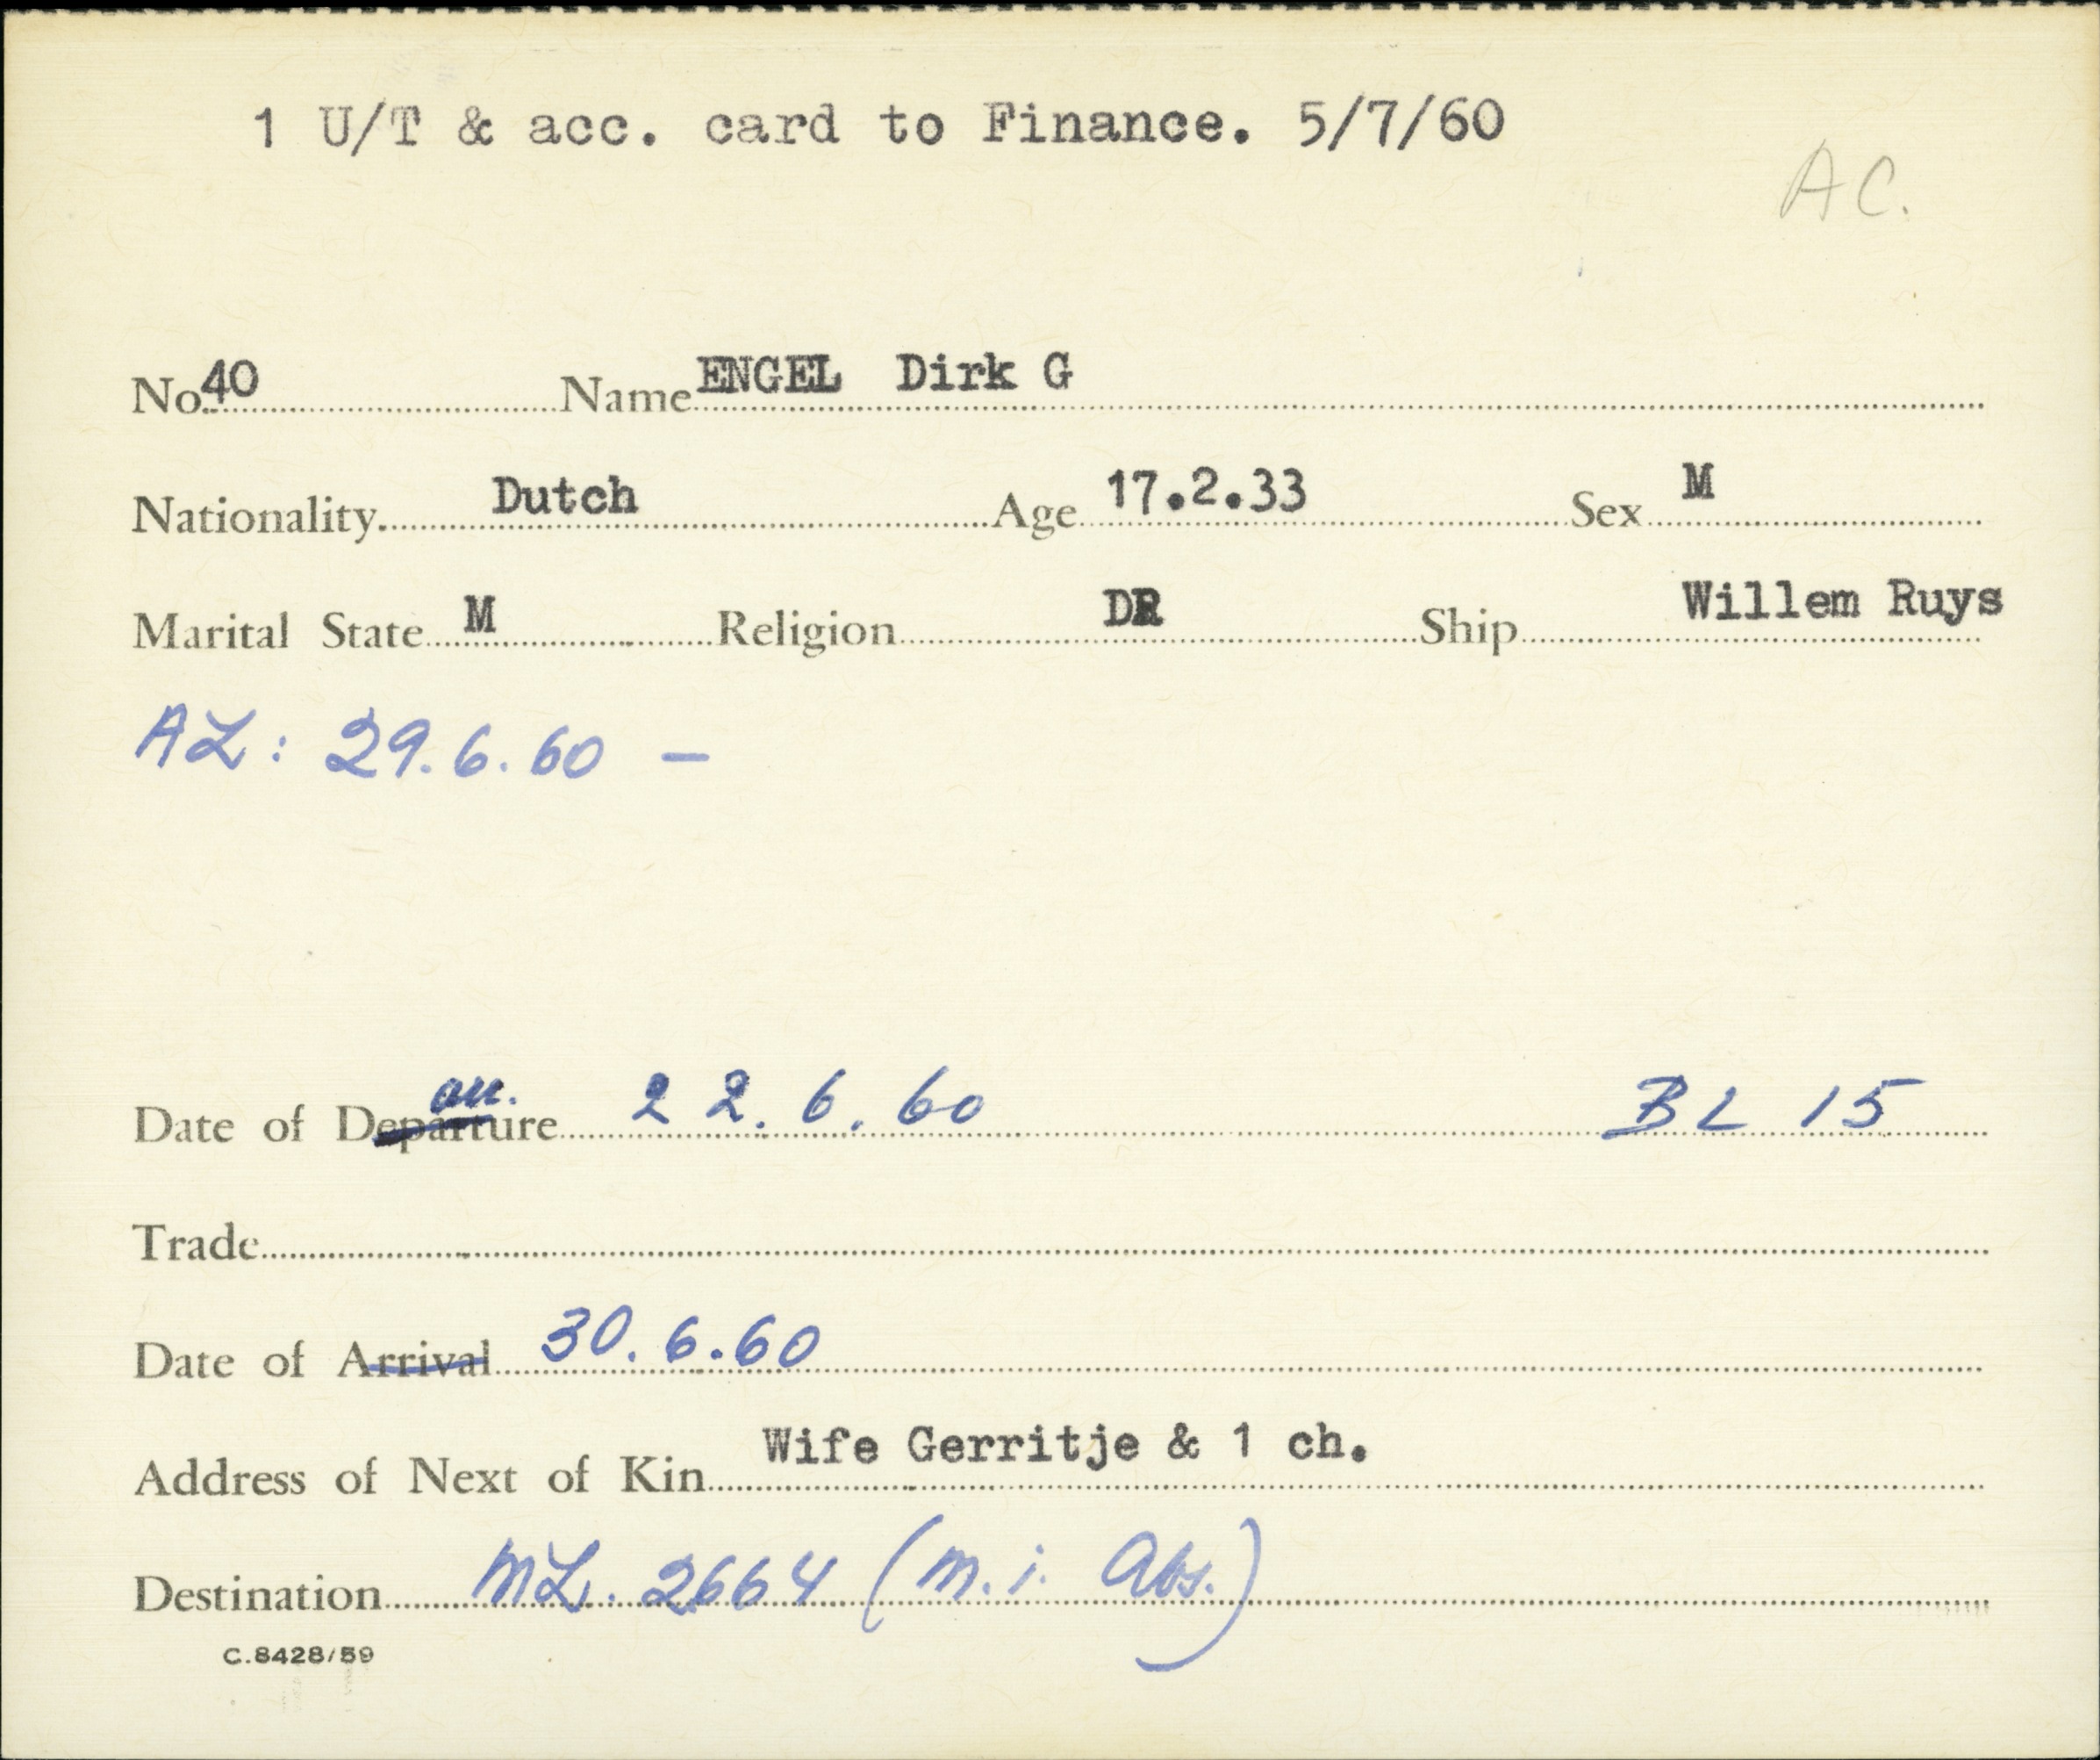 1 U/T & acc. card to Finance. 5/7/60
A C.
No. 40 Name ENGEL Dirk G
Nationality Dutch Age 17.2.33 Sex M
Marital State M Religion DR Ship Willem Ruys
AL: 29.6.60 –
arr.
Date of Departure 22.6.60 BL 15
Trade
Date of Arrival 30.6.60
Address of Next of Kin Wife Gerritje & 1 ch.
Destination ML. 2664 (m.i. Abs.)
C.8428/59